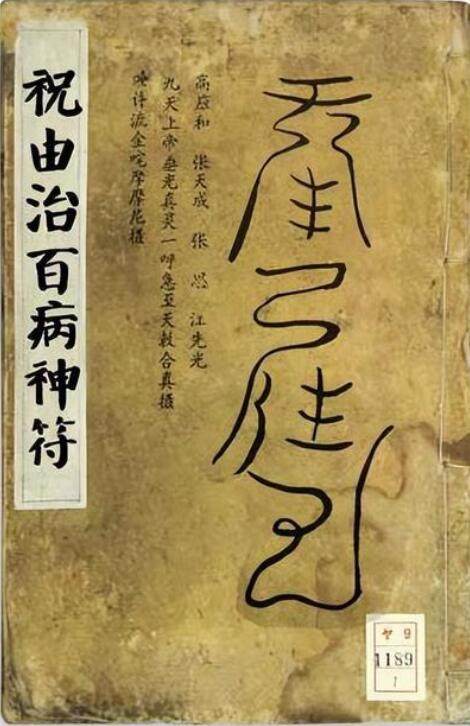 祝由治百病神符
高应和 张天成 张 江先光
九天上帝垂光真炁一呼急至天敕合真摄
唵侓流金咤摩摩尼摄
ヤ 9
1189
1